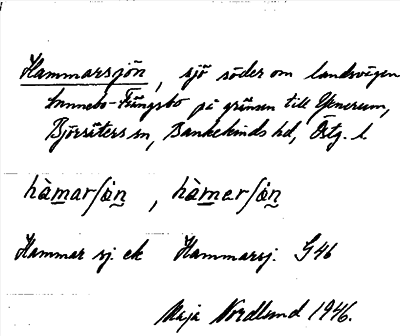 Hammarsjön, sjö söder om landsvägen
Sunnebo-Fångsbo på gränsen till Yxnerum,
Björsäters sn, Bankekinds hd, Östg. l.
hàmarʃön, hàmerʃön
Hammar sj ek Hammarsj: G46
Maja Nordlund 1946.